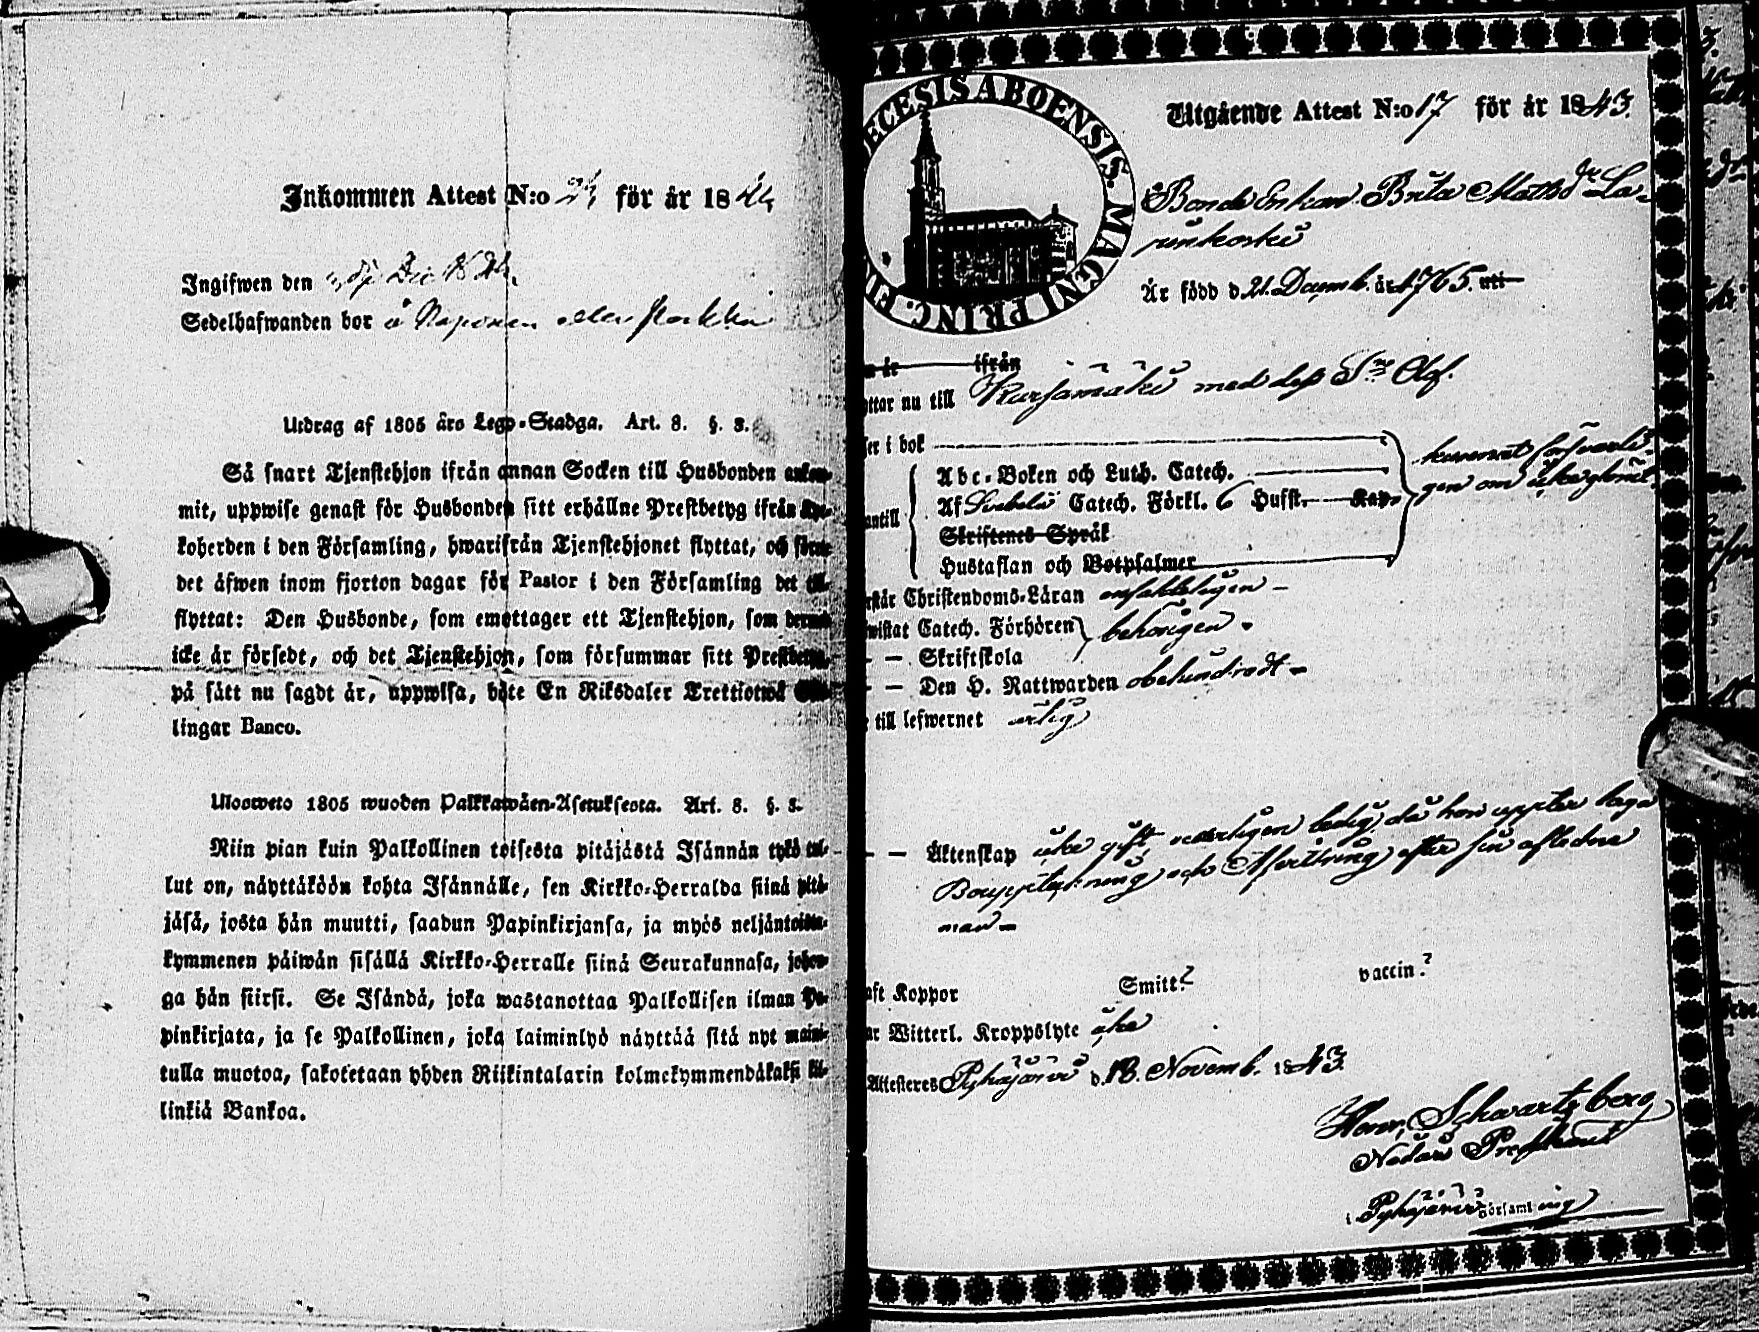 Inkommen Attest N:o för år 18
Ingifwen den
Sedelhafwanden bor å eller
Utdrag af 1805 års Lego-Stadga. Art. 8. §. 8.
Så snart Tjenstehjon ifrån annan Socken till Husbonden ankom-
mit, uppwise genast för Husbonden sitt erhållne Prestbetyg ifrån Kyr-
koherden i den Församling, hwarifrån Tjenstehjonet flyttat, och
det äfwen inom fjorton dagar för Pastor i den Församling det till-
flyttat: Den Husbonde, som emottager ett Tjenstehjon, som dermed
icke är försedt, och det Tjenstehjon, som försummar sitt Prestbetyg,
på sätt nu sagdt är, uppwisa, böte En Riksdaler Trettiotwå
lingar Banco.
Uloosweto 1805 wuoden Palkkawäen-Asetuksesta. Art. 8. §. 8.
Niin pian kuin Palkollinen toisesta pitäjästä Isännän tykö tul-
lut on, näyttäköön kohta Isännälle, sen Kirkko-Herralda siinä pitä-
jäsä, josta hän muutti, saadun Papinkirjansa, ja myös neljäntoista-
kymmenen päiwän sisällä Kirkko-Herralle siinä Seurakunnasa, johon-
ga hän siirsi. Se Isändä, joka wastanottaa Palkollisen ilman Pa-
pinkirjata, ja se Palkollinen, joka laiminlyö näyttää sitä nyt maini-
tulla muotoa, sakotetaan yhden Riikintalarin kolmekymmendäkaksi kil-
linkiä Bankoa.
ECESIS ABOENSIS. MAGNI PRINC. FIN
Utgående Attest N:o 17 för år 1843.
Bonde Enkan Brita Matts dr La-
rinkoski
Är född d. 21. Decemb. år 1765. uti
år ifrån
ttar nu till Karjamäki med dess Sn Olof.
ser i bok
Abc-Boken och Luth. Catech.
Af Svebelii Catech. Förkl. 6 Hufst. Kap.
antill
Skriftenes Språk
Hustaflan och Botpsalmer
rstår Christendoms-Läran enfaldeligen
wistat Catech. Förhören behörigen
— — Skriftskola
— — Den H. Nattwarden obehindradt
till lefwernet ärlig
— — Äktenskap icke gift, ledig, då hon uppter laga
Bouppteckning och Afvittring efter sin aflidne
man
aft Koppor Smitt? vaccin?
ar Witterl. Kroppslyte icke
Attesteres Pyhäjärvi d. 18. Novemb. 1843.
Schwartzberg
i Pyhäjärvi Församling